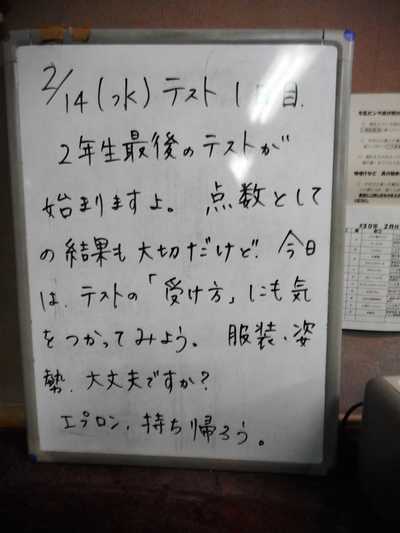 2/14(水)テスト1日目.
2年生最後のテストが
始まりますよ。点数として
の結果も大切だけど、今日
は、テストの「受け方」にも気
をつかってみよう。服装、姿
勢、大丈夫ですか?
エプロン、持ち帰ろう。